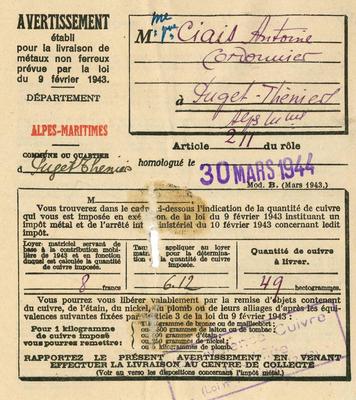 AVERTISSEMENT
établi
pour la livraison de
métaux non ferreux
prévue par la loi
du 9 février 1943.
DÉPARTEMENT
ALPES-MARITIMES
COMMUNE OU QUARTIER
Puget Théniers
M. me Vve Ciais Antoine
Cordonnier
à Puget-Théniers
Alp. Mme
Article 211 du rôle
homologué le 30 MARS 1944
Mod. B. (Mars 1943.)
M
Vous trouverez dans le cadre ci-dessous l'indication de la quantité de cuivre
qui vous est imposée en exécution de la loi du 9 février 1943 instituant un
impôt métal et de l'arrêté interministériel du 10 février 1943 concernant ledit
impôt.
Loyer matriciel servant de
base à la contribution mobi-
lière de 1943 et en fonction
duquel est calculée la quantité
de cuivre imposée.
8 francs
Taux à appliquer au loyer
matriciel pour la détermina-
tion de la quantité
de cuivre imposée.
6.12
Quantité de cuivre
à livrer.
49 hectogrammes.
Vous pourrez vous libérer valablement par la remise d'objets contenant
du cuivre, de l'étain, du nickel, du plomb ou de leurs alliages d'après les équi-
valences suivantes fixées par l'article 3 de la loi du 9 février 1943 :
Pour 1 kilogramme
de cuivre imposé
vous pourrez remettre:
kilogramme de bronze ou de maillechort;
grammes de laiton ou de
grammes de nickel
kilogramme de plomb.
Cuivre
RAPPORTEZ LE PRÉSENT AVERTISSEMENT EN VENANT
EFFECTUER LA LIVRAISON AU CENTRE DE COLLECTE
(Voir au verso les dispositions concernant l'impôt métal.)